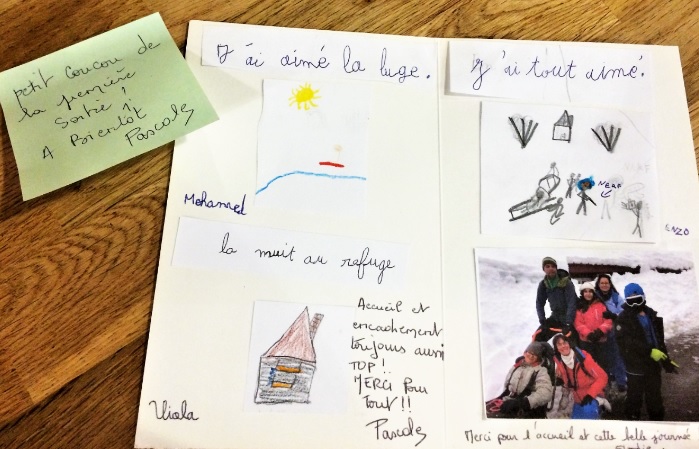 petit coucou de
la première
sortie !
A Bientôt !
Pascale
J'ai aimé la luge.
Mohamed
la nuit au refuge
Viola
Accueil et
encadrement
toujours aussi
TOP !
MERCI pour
tout !!
Pascale
J'ai tout aimé.
ENZO
Merci pour l'accueil et cette belle journée